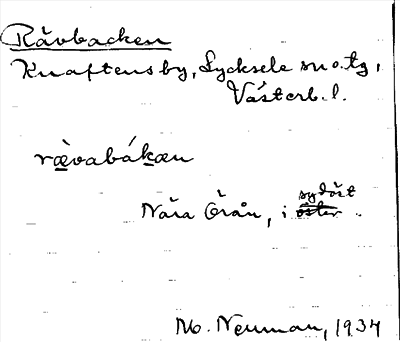 Rävbacken
Knaftens by, Lycksele sn o. tg,
Västerb. l.
rævabákæn
sydöst
Nära Örån, i öster.
M. Neuman, 1934